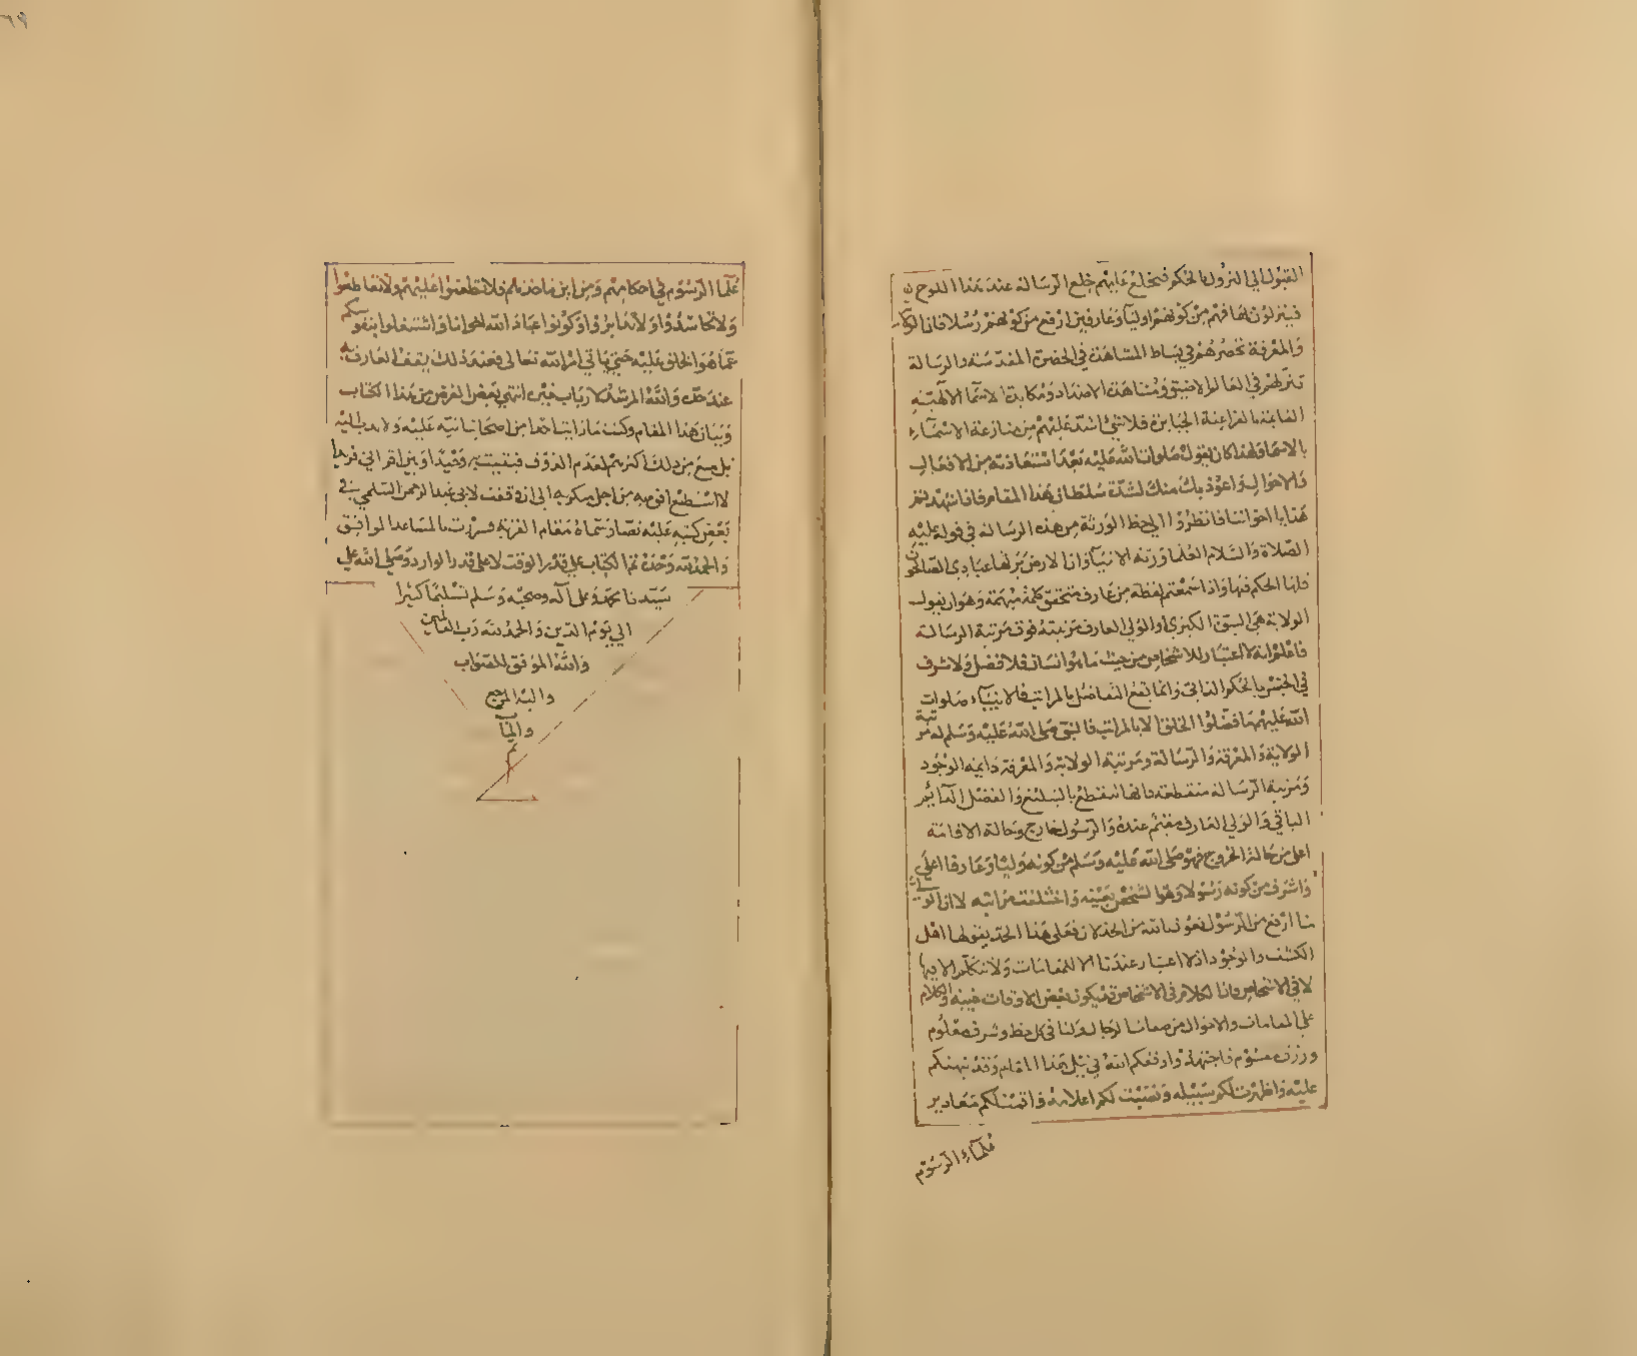 القبول الى النزول بالحكم فتخلع عليهم خلع الرسالة عند هذا اللوح
فينزلون لها فهم من كونهم اولياء وعارفين ارفع من كونهم رسلا فان الولاية
والمعرفة تحصرهم في بساط المشاهدة في الحضرة المقدسة والرسالة
تنزلهم في العالم الاضيق ومشاهدة الاضداد ومكابدة الاسماء الالهية
القائمة بالفراعنة الجبابرة فلا شيء اشد عليهم من منازعة الاسماء
بالاسماء ولهذا كان يقول صلوات الله عليه بعد استعاذته من الافعال
والاحوال واعوذ بك منك لشدة سلطان هذا المقام فان
هذا يا اخواننا فانظروا الى حظ الورثة من هذه الرسالة في قوله عليه
الصلاة والسلام العلماء ورثة الانبياء وان الارض يرثها عبادي الصالحون
فلها الحكم فيها واذا سمعتم لفظة من عارف متحقق كلمة مبهمة وهو ان يقول
الولاية هي النبوة الكبرى او الولي العارف مرتبته فوق مرتبة الرسالة
فاعلموا انه لا اعتبار للاشخاص من حيث ما هو انسان فلا فضل ولا شرف
في الجنس بالحكم الذاتي وانما يقع التفاضل بالمراتب فالانبياء صلوات
الله عليهم ما فضلوا الخلق الا بالمراتب فالنبي صلى الله عليه وسلم له مرتبة
الولاية والمعرفة والرسالة ومرتبة الولاية والمعرفة دايمة الوجود
ومرتبة الرسالة منقطعة فانها تنقطع بالتبليغ والفضل الدائم
الباقي والولي العارف مقيم عنده والرسول خارج وحالة الاقامة
اعلى من حالة الخروج فهو صلى الله عليه وسلم من كونه وليا وعارفا اعلى
واشرف من كونه رسولا وهو الشخص بعينه واختلفت مراتبه لا ان الولي
منا ارفع من الرسول نعوذ بالله من الخذلان فعلى هذا الحد يقولها اهل
الكشف والوجود اذ لا اعتبار عندنا الا للمقامات ولا نتكلم الا فيها
لا في الاشخاص فان الكلام في الاشخاص قد يكون بعض الاوقات غيبة والكلام
على المقامات والاحوال من صفات الرجال ولنا في كل حظ وشرف معلوم
ورزق مقسوم فاجتهدوا وفقكم الله في نيل هذا المقام وقد نبهتكم
عليه واظهرت لكم سبيله ونصبت لكم اعلامه واقمت لكم معاذير
علماء الرسوم
علماء الرسوم في احكامهم ومن اين ماخذهم فلا تطعنوا عليهم ولا تقاطعوا
ولا تحاسدوا ولا تدابروا وكونوا عباد الله اخوانا واشتغلوا بنفوسكم
عما هو الخلق عليه حتى ياتي امر الله تعالى فعند ذلك يقف العارف
عند حده والله المرشد لا رب غيره انتهى بعض الغرض من هذا الكتاب
وبيان هذا المقام وكنت ما رايت احدا من اصحابنا نبه عليه ولا ندب اليه
بل منع من ذلك اكثرهم لعدم الذوق فبقيت به وحيدا وبين اقراني فريدا
لا استطيع افوه به من اجل منكريه الى ان وقفت لابي عبد الرحمن السلمي في
بعض كتبه عليه نصا وسماه مقام القربة فسررت بالمساعد الموافق
والحمد لله وحده تم الكتاب على قدر الوقت لا على قدر الوارد وصلى الله على
سيدنا محمد وعلى آله وصحبه وسلم تسليما كثيرا
الى يوم الدين والحمد لله رب العالمين
والله الموفق للصواب
واليه المرجع
والمآب
تم